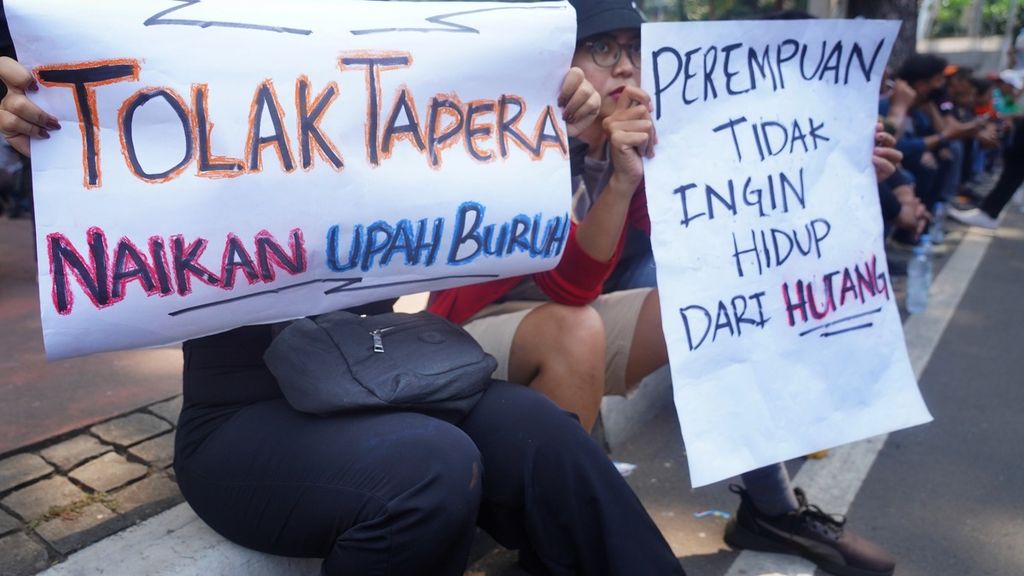 TOLAK TAPERA
NAIKAN UPAH BURUH
PEREMPUAN
TIDAK
INGIN
HIDUP
DARI HUTANG